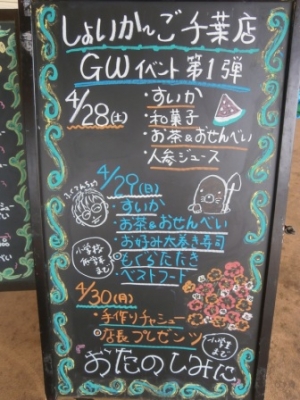 しょいか〜ご千葉店
GWイベント第1弾
4/28(土)
・すいか
・和菓子
・お茶&おせんべい
・人参ジュース
4/29(日)
・すいか
・お茶&おせんべい
・お好み太巻き寿司
・もぐらたたき
・ベストフード
小学校
まで
4/30(月)
・手作りチャシュー
・店長プレゼンツ
小学生
まで
おたのしみに